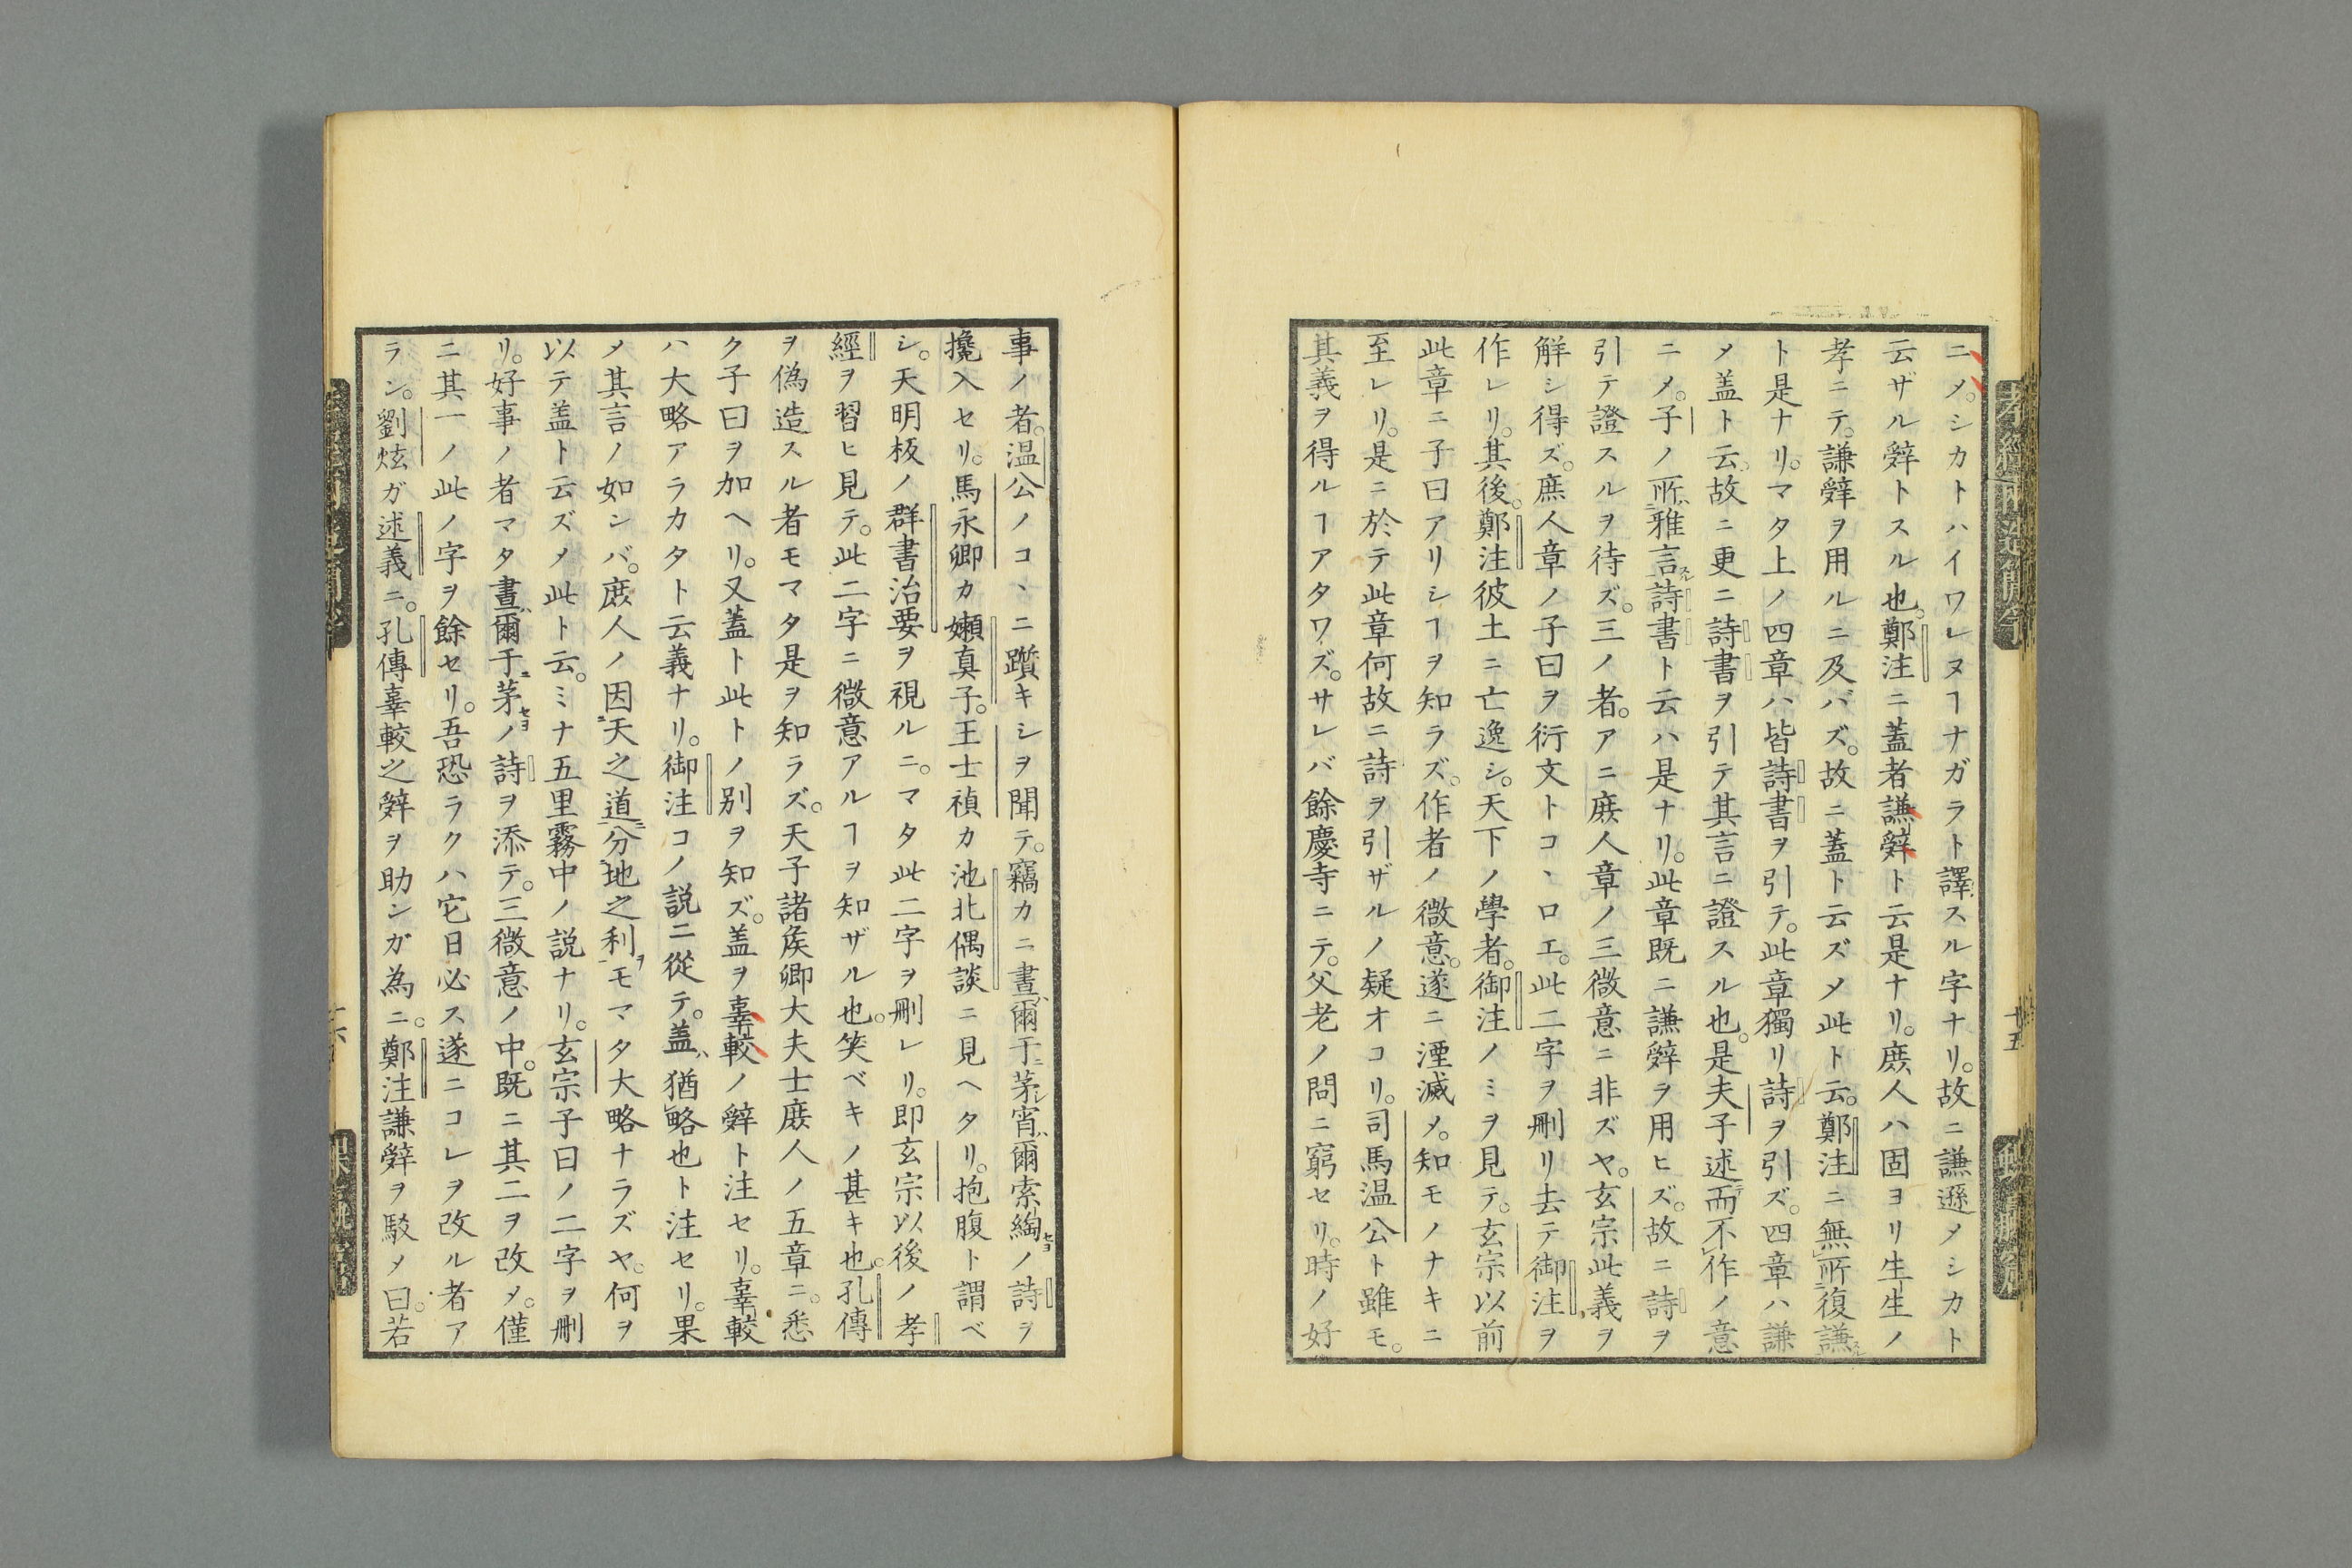 ニメ。シカトハイワレヌヿナガラト譯スル字ナリ。故ニ謙遜メシカト
云ザル辤トスル也。鄭注ニ蓋者謙辤ト云是ナリ。庶人ハ固ヨリ生生ノ
孝ニテ。謙辤ヲ用ルニ及バズ。故ニ蓋ト云ズメ此ト云。鄭注ニ無所復謙
ト是ナリ。マタ上ノ四章ハ皆詩書ヲ引テ。此章獨リ詩ヲ引ズ。四章ハ謙
メ蓋ト云。故ニ更ニ詩書ヲ引テ其言ニ證スル也。是夫子述而不作ノ意
ニメ。子ノ所雅言詩書ト云ハ是ナリ。此章既ニ謙辤ヲ用ヒズ。故ニ詩ヲ
引テ證スルヲ待ズ。三ノ者。アニ庶人章ノ三微意ニ非ズヤ。玄宗此義ヲ
解シ得ズ。庶人章ノ子曰ヲ衍文トコヽロエ。此二字ヲ刪リ去テ御注ヲ
作レリ。其後。鄭注彼土ニ亡逸シ。天下ノ學者。御注ノミヲ見テ。玄宗以前
此章ニ子曰アリシヿヲ知ラズ。作者ノ微意。遂ニ湮滅メ。知モノナキニ
至レリ。是ニ於テ此章何故ニ詩ヲ引ザルノ疑オコリ。司馬温公ト雖モ。
其義ヲ得ルヿアタワズ。サレバ餘慶寺ニテ。父老ノ問ニ窮セリ。時ノ好
事ノ者。温公ノコヽニ躓キシヲ聞テ。竊カニ晝爾于茅宵爾索綯ノ詩ヲ
攙入セリ。馬永卿カ嬾真子。王士禎カ池北偶談ニ見ヘタリ。抱腹ト謂ベ
シ。天明板ノ群書治要ヲ視ルニ。マタ此二字ヲ刪レリ。即玄宗以後ノ孝
經ヲ習ヒ見テ。此二字ニ微意アルヿヲ知ザル也。笑ベキノ甚キ也。孔傳
ヲ偽造スル者モマタ是ヲ知ラズ。天子諸矦卿大夫士庶人ノ五章ニ。悉
ク子曰ヲ加ヘリ。又蓋ト此トノ別ヲ知ズ。蓋ヲ辜較ノ辤ト注セリ。辜較
ハ大略アラカタト云義ナリ。御注コノ説ニ從テ。蓋ハ猶略也ト注セリ。果
メ其言ノ如シバ。庶人ノ因天之道分地之利モマタ大略ナラズヤ。何ヲ
以テ蓋ト云ズメ此ト云。ミナ五里霧中ノ説ナリ。玄宗子曰ノ二字ヲ刪
リ。好事ノ者マタ晝爾于茅ノ詩ヲ添テ。三微意ノ中。既ニ其二ヲ改メ。僅
ニ其一ノ此ノ字ヲ餘セリ。吾恐ラクハ它日必ス遂ニコレヲ改ル者ア
ラン。劉炫ガ述義ニ。孔傳辜較之辤ヲ助ンガ為ニ。鄭注謙辤ヲ駁メ曰。若